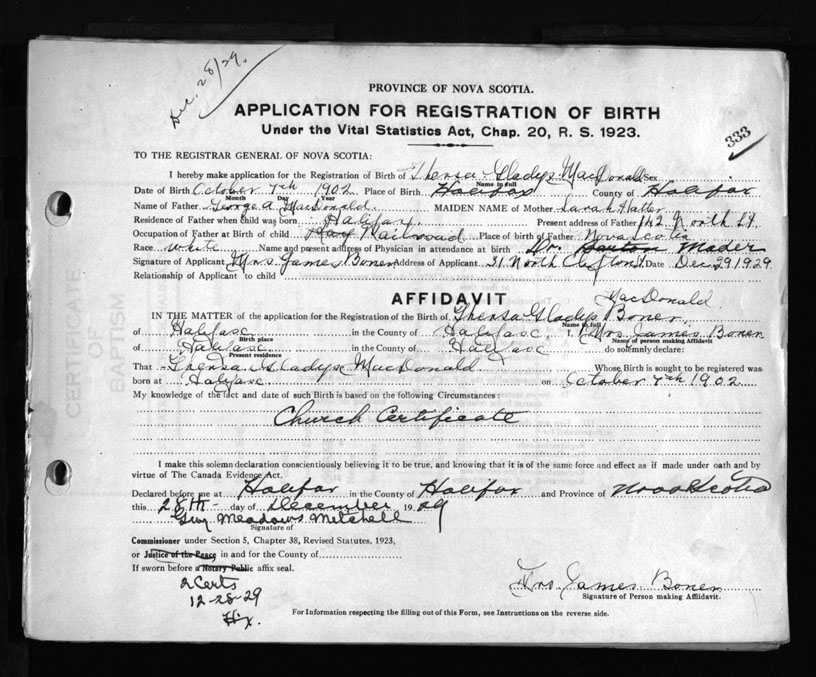 Dec. 28/29.
PROVINCE OF NOVA SCOTIA.
APPLICATION FOR REGISTRATION OF BIRTH
Under the Vital Statistics Act, Chap. 20, R. S. 1923.
333
TO THE REGISTRAR GENERAL OF NOVA SCOTIA:
I hereby make application for the Registration of Birth of Thersa Gladys MacDonald Sex
Name in full
Date of Birth October 7th 1902 Place of Birth Halifax County of Halifax
Month Day Year
Name of Father George A MacDonald MAIDEN NAME of Mother Sarah Hatter
Residence of Father when child was born Halifax Present address of Father 142 North St
Occupation of Father at Birth of child Railroad Place of birth of Father Nova Scotia
Race white Name and present address of Physician in attendance at birth Dr. Mader
Signature of Applicant Mrs James Boner Address of Applicant 31 North Clifton St Date Dec 29 1929
Relationship of Applicant to child
AFFIDAVIT
MacDonald
IN THE MATTER of the application for the Registration of the Birth of Thersa Gladys Boner
Name in full
of Halifasc in the County of Halifasc, I, Mrs. James Boner
Birth place
Name of person making Affidavit
of Halifasc in the County of Halifasc do solemnly declare:
Present residence
That Thersa Gladys MacDonald Whose Birth is sought to be registered was
born at Halifasc on October 7th 1902
My knowledge of the fact and date of such Birth is based on the following Circumstances:
Church Certificate
I make this solemn declaration conscientiously believing it to be true, and knowing that it is of the same force and effect as if made under oath and by
virtue of The Canada Evidence Act.
Declared before me at Halifax in the County of Halifax and Province of Nova Scotia
this 28th day of December 1929
Guy Meadows Mitchell
Signature of
Commissioner under Section 5, Chapter 38, Revised Statutes, 1923,
or Justice of the Peace in and for the County of
If sworn before a Notary Public affix seal.
2 Certs
12-28-29
Hx.
Mrs James Boner
Signature of Person making Affidavit.
For Information respecting the filling out of this Form, see Instructions on the reverse side.
CERTIFICATE
OF
BAPTISM